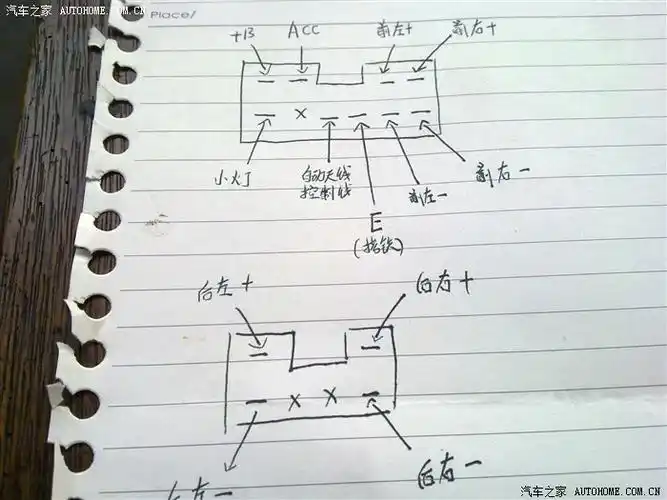 汽车之家 AUTOHOME.COM.CN
Place/
+B ACC 前左+ 前右+
小灯 自动天线
控制线 前左- 前右-
E
(搭铁)
后左+ 后右+
后左- 后右-
汽车之家 AUTOHOME.COM.CN